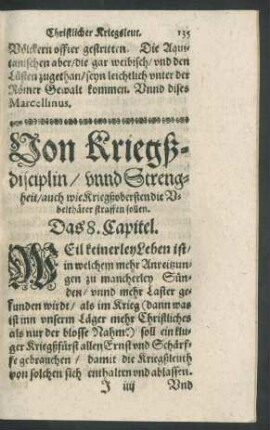 Christlicher Kriegsleut. 135
Völckern offter gestritten. Die Aqui-
tanischen aber / die gar weibisch / vnd den
Lüsten zugethan / seyn leichtlich vnter der
Römer Gewalt kommen. Vnnd dises
Marcellinus.
Von Kriegß-
disciplin / vnnd Streng-
heit / auch wie Kriegßobersten die V-
belthäter straffen sollen.
Das 8. Capitel.
WEil keinerley Leben ist /
in welchem mehr Anreitzun-
gen zu mancherley Sün-
den / vnnd mehr Laster ge-
funden wirdt / als im Krieg (dann was
ist inn vnserm Läger mehr Christliches
als nur der blosse Nahm?) soll ein klu-
ger Kriegßfürst allen Ernst vnd Schärf-
fe gebrauchen / damit die Kriegßleuth
von solchen sich enthalten vnd ablassen.
J iiij Vnd